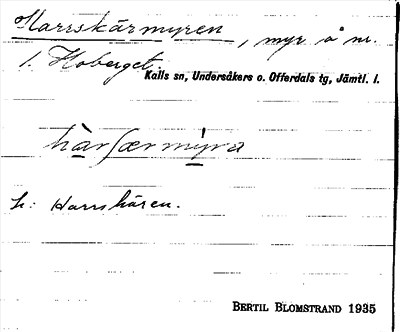 Harrskärmyren, myr å nr.
1. Hoberget.
Kalls sn, Undersåkers o. Offerdals tg, Jämtl. l.
hàrʃærmỳra
h: Harrskären.
BERTIL BLOMSTRAND 1935